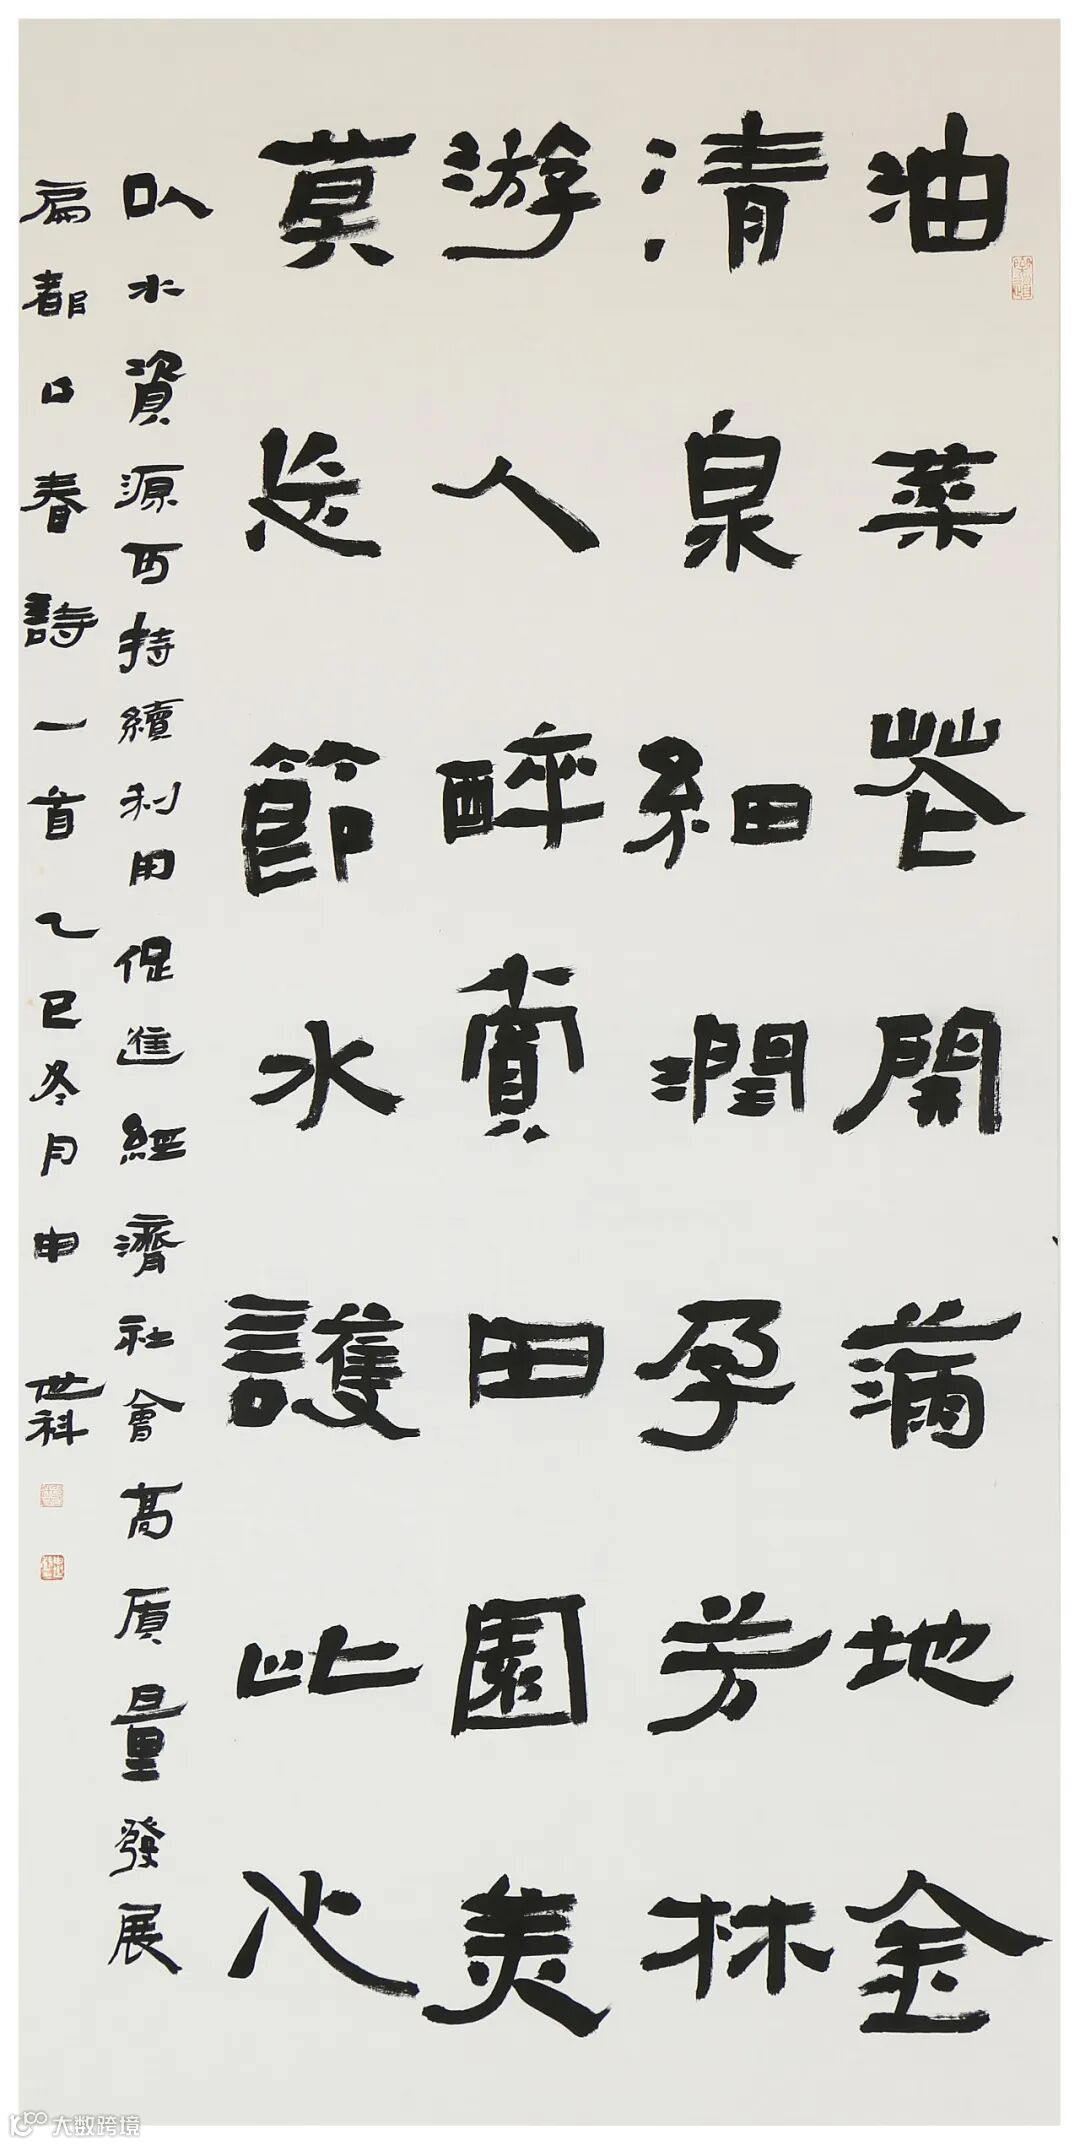 油菜花開滿地金
清泉細潤孕芳林
游人醉賞田園美
莫忘節水護此心
以水資源可持續利用促進經濟社會高質量發展
扁都口春詩一首乙巳冬月申世科
大数跨境